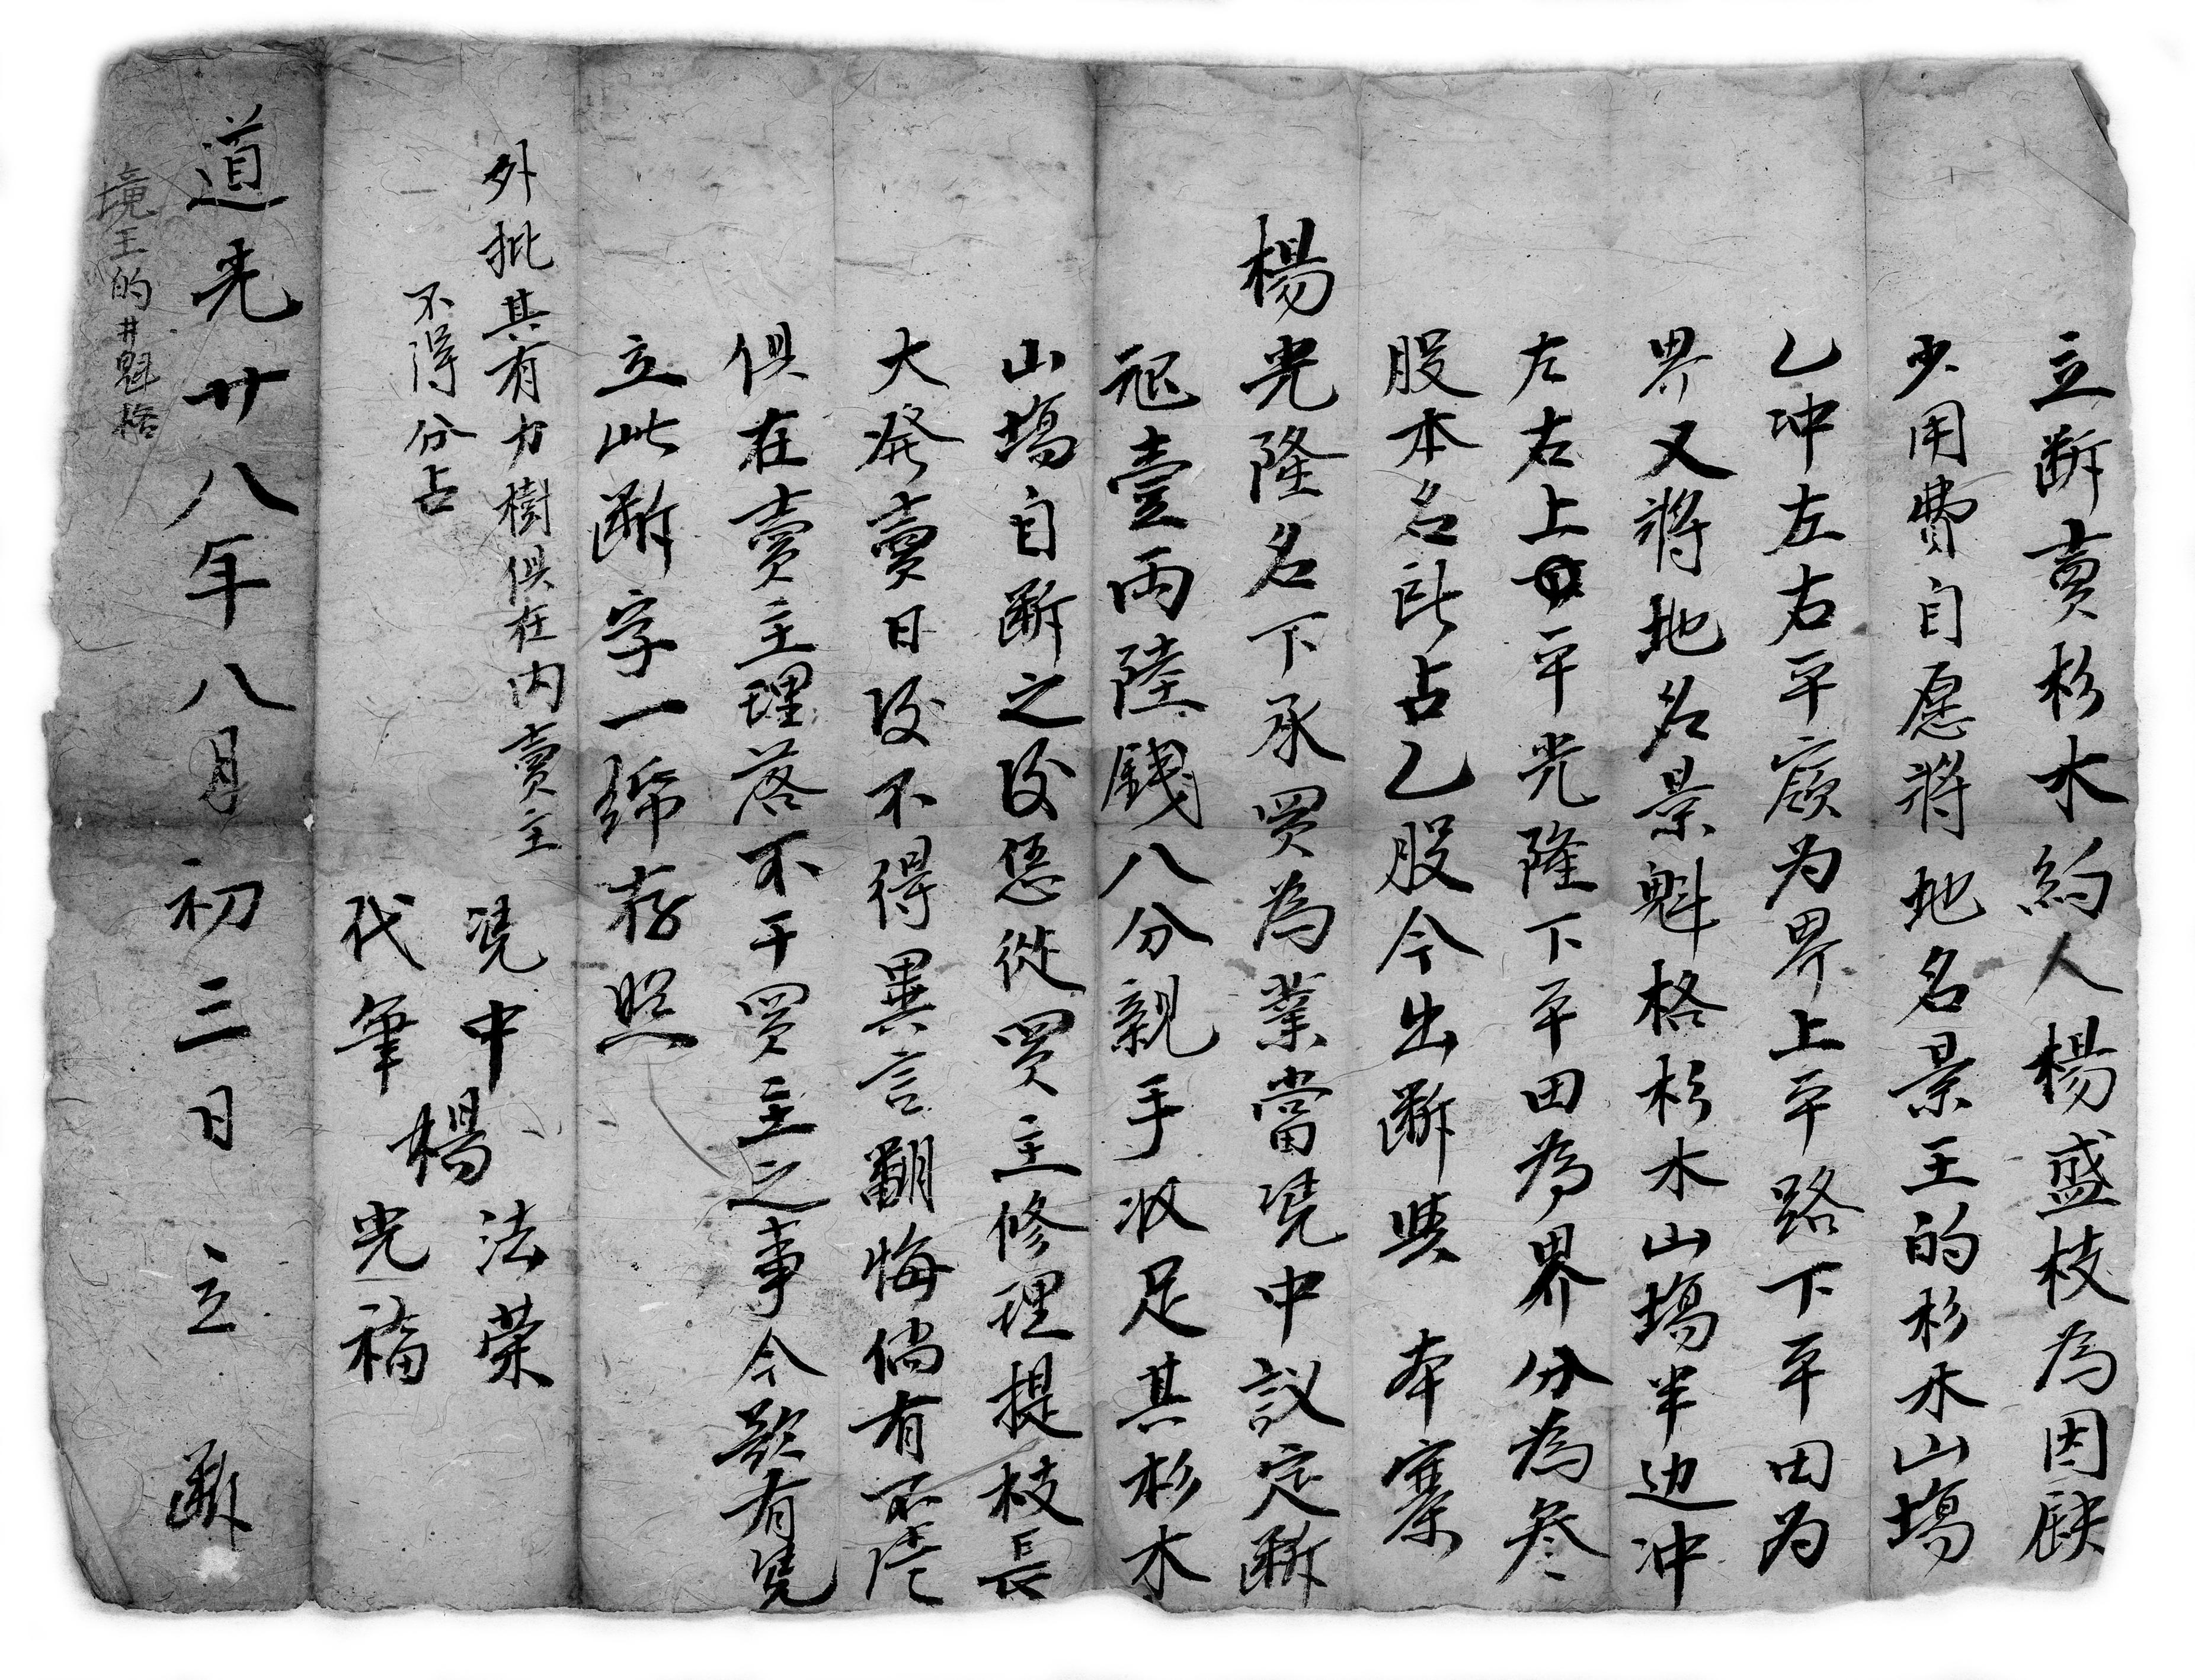 立断賣杉木約人楊盛枝為因缺
少用費自愿將地名景王的杉木山塲
乙冲左右平嶺为界上平路下平田为
界又將地名景魁格杉木山塲半边冲
左右上平光隆下平田為界分為叁
股本名所占乙股今出断與 本寨
楊光隆名下承買為業當凴中議定断
價壹兩陸錢八分親手收足其杉木
山塲自断之後恁從買主修理提枝長
大發賣日後不得異言翻悔倘有不清
俱在賣主理落不干買主之事今欲有凴
立此断字一紙存照
外批其有力樹俱在内賣主
不得分占
凴中 楊 法荣
代筆 光福
道光廿八年八月初三日 立 断
境王的井魁格